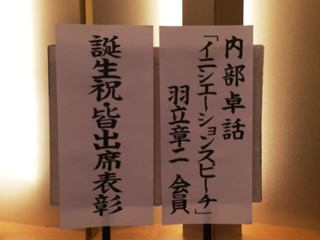 内部卓話
「イニシエーションスピーチ」
羽立章二 会員
誕生祝・皆出席表彰